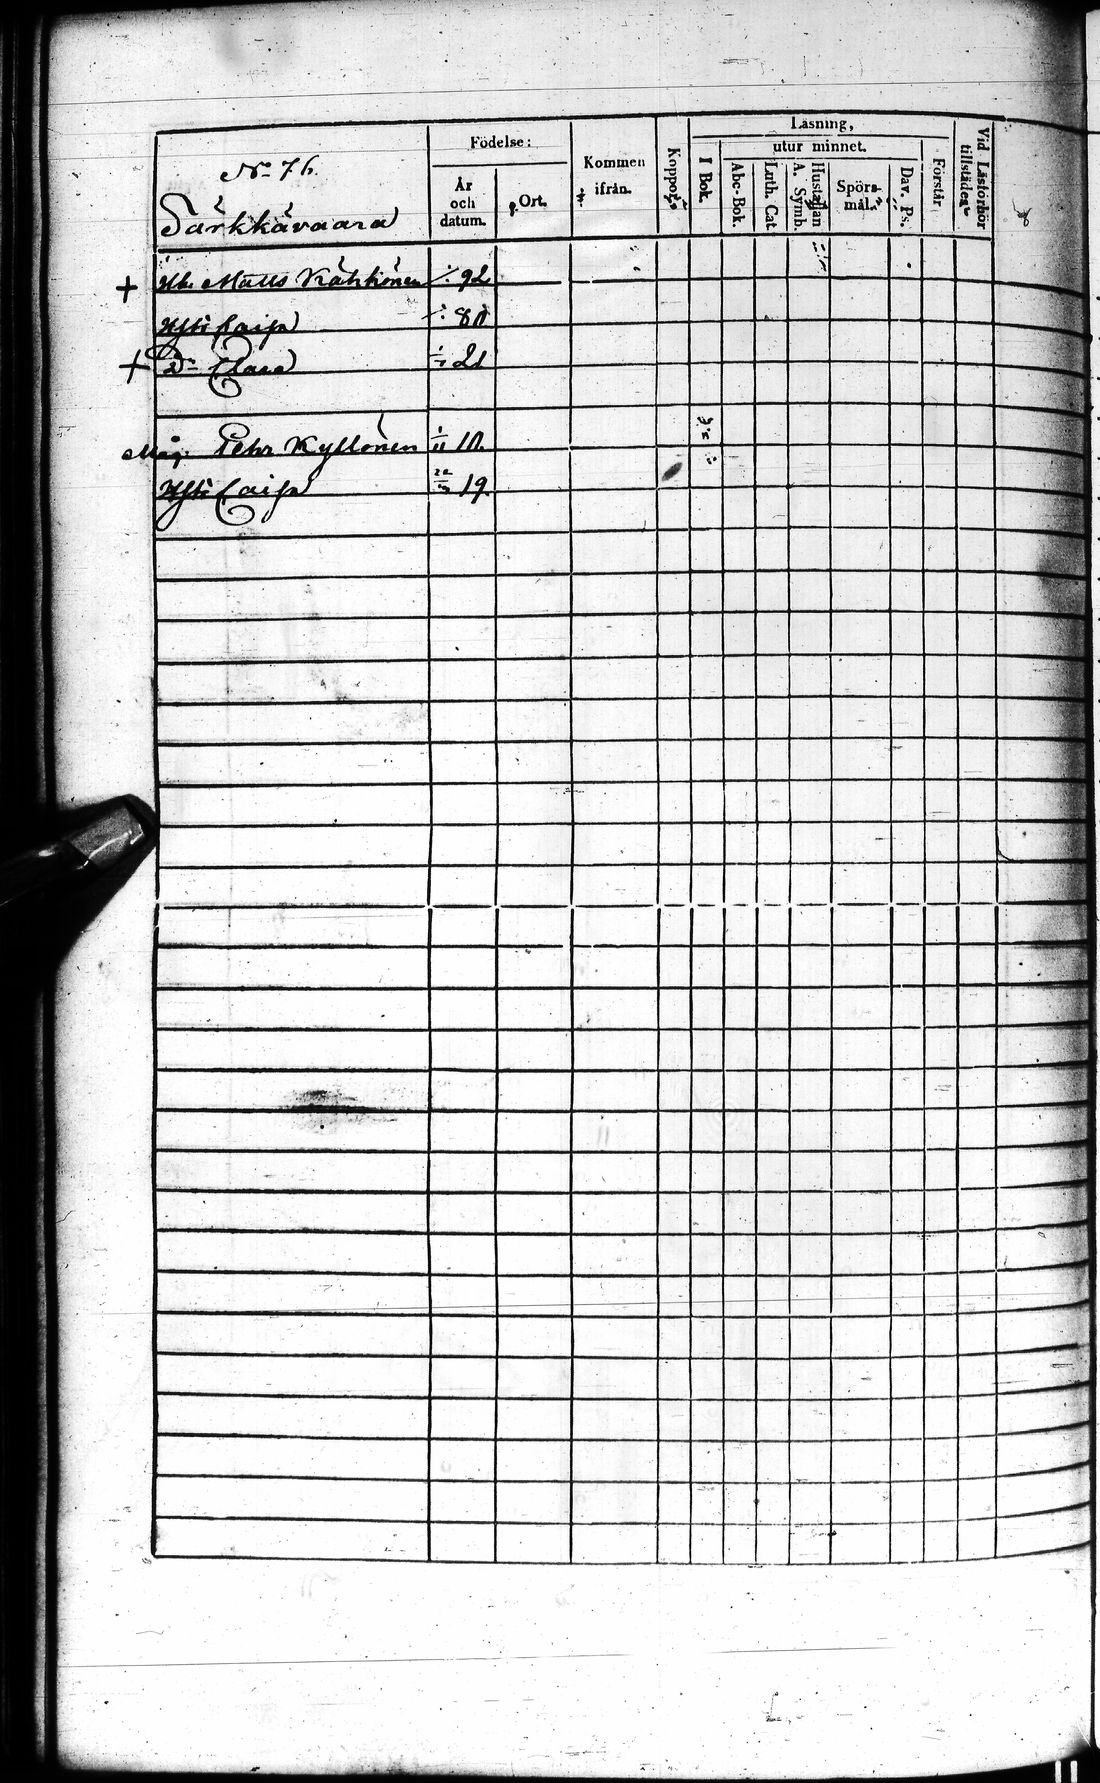 No 76.
Särkkävaara
Födelse:
År och datum.
Ort.
Kommen ifrån.
Koppor.
Läsning,
I Bok.
utur minnet.
Abc-Bok.
Luth. Cat.
Hustaflan A. Symb.
Spörsmål.
Dav. Ps.
Förstår.
Vid Läsförhör tillstädes
+ Hb. Matts Kähkönen 92
Hst. Caisa 80
+ Dr Clara 21
Måg. Pehr Kyllönen 10.
Hst. Caisa 19.